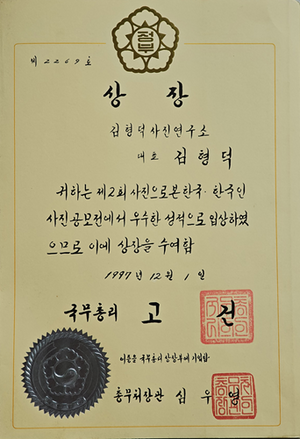 정부
제 2269 호
상 장
김형덕사진연구소
대표 김형덕
귀하는 제2회 사진으로본한국·한국인
사진공모전에서 우수한 성적으로 입상하였
으므로 이에 상장을 수여함
1997년 12월 1일
국무총리 고 건
이 증을 국무총리 상장부에 기입함
총무처장관 심 우 영